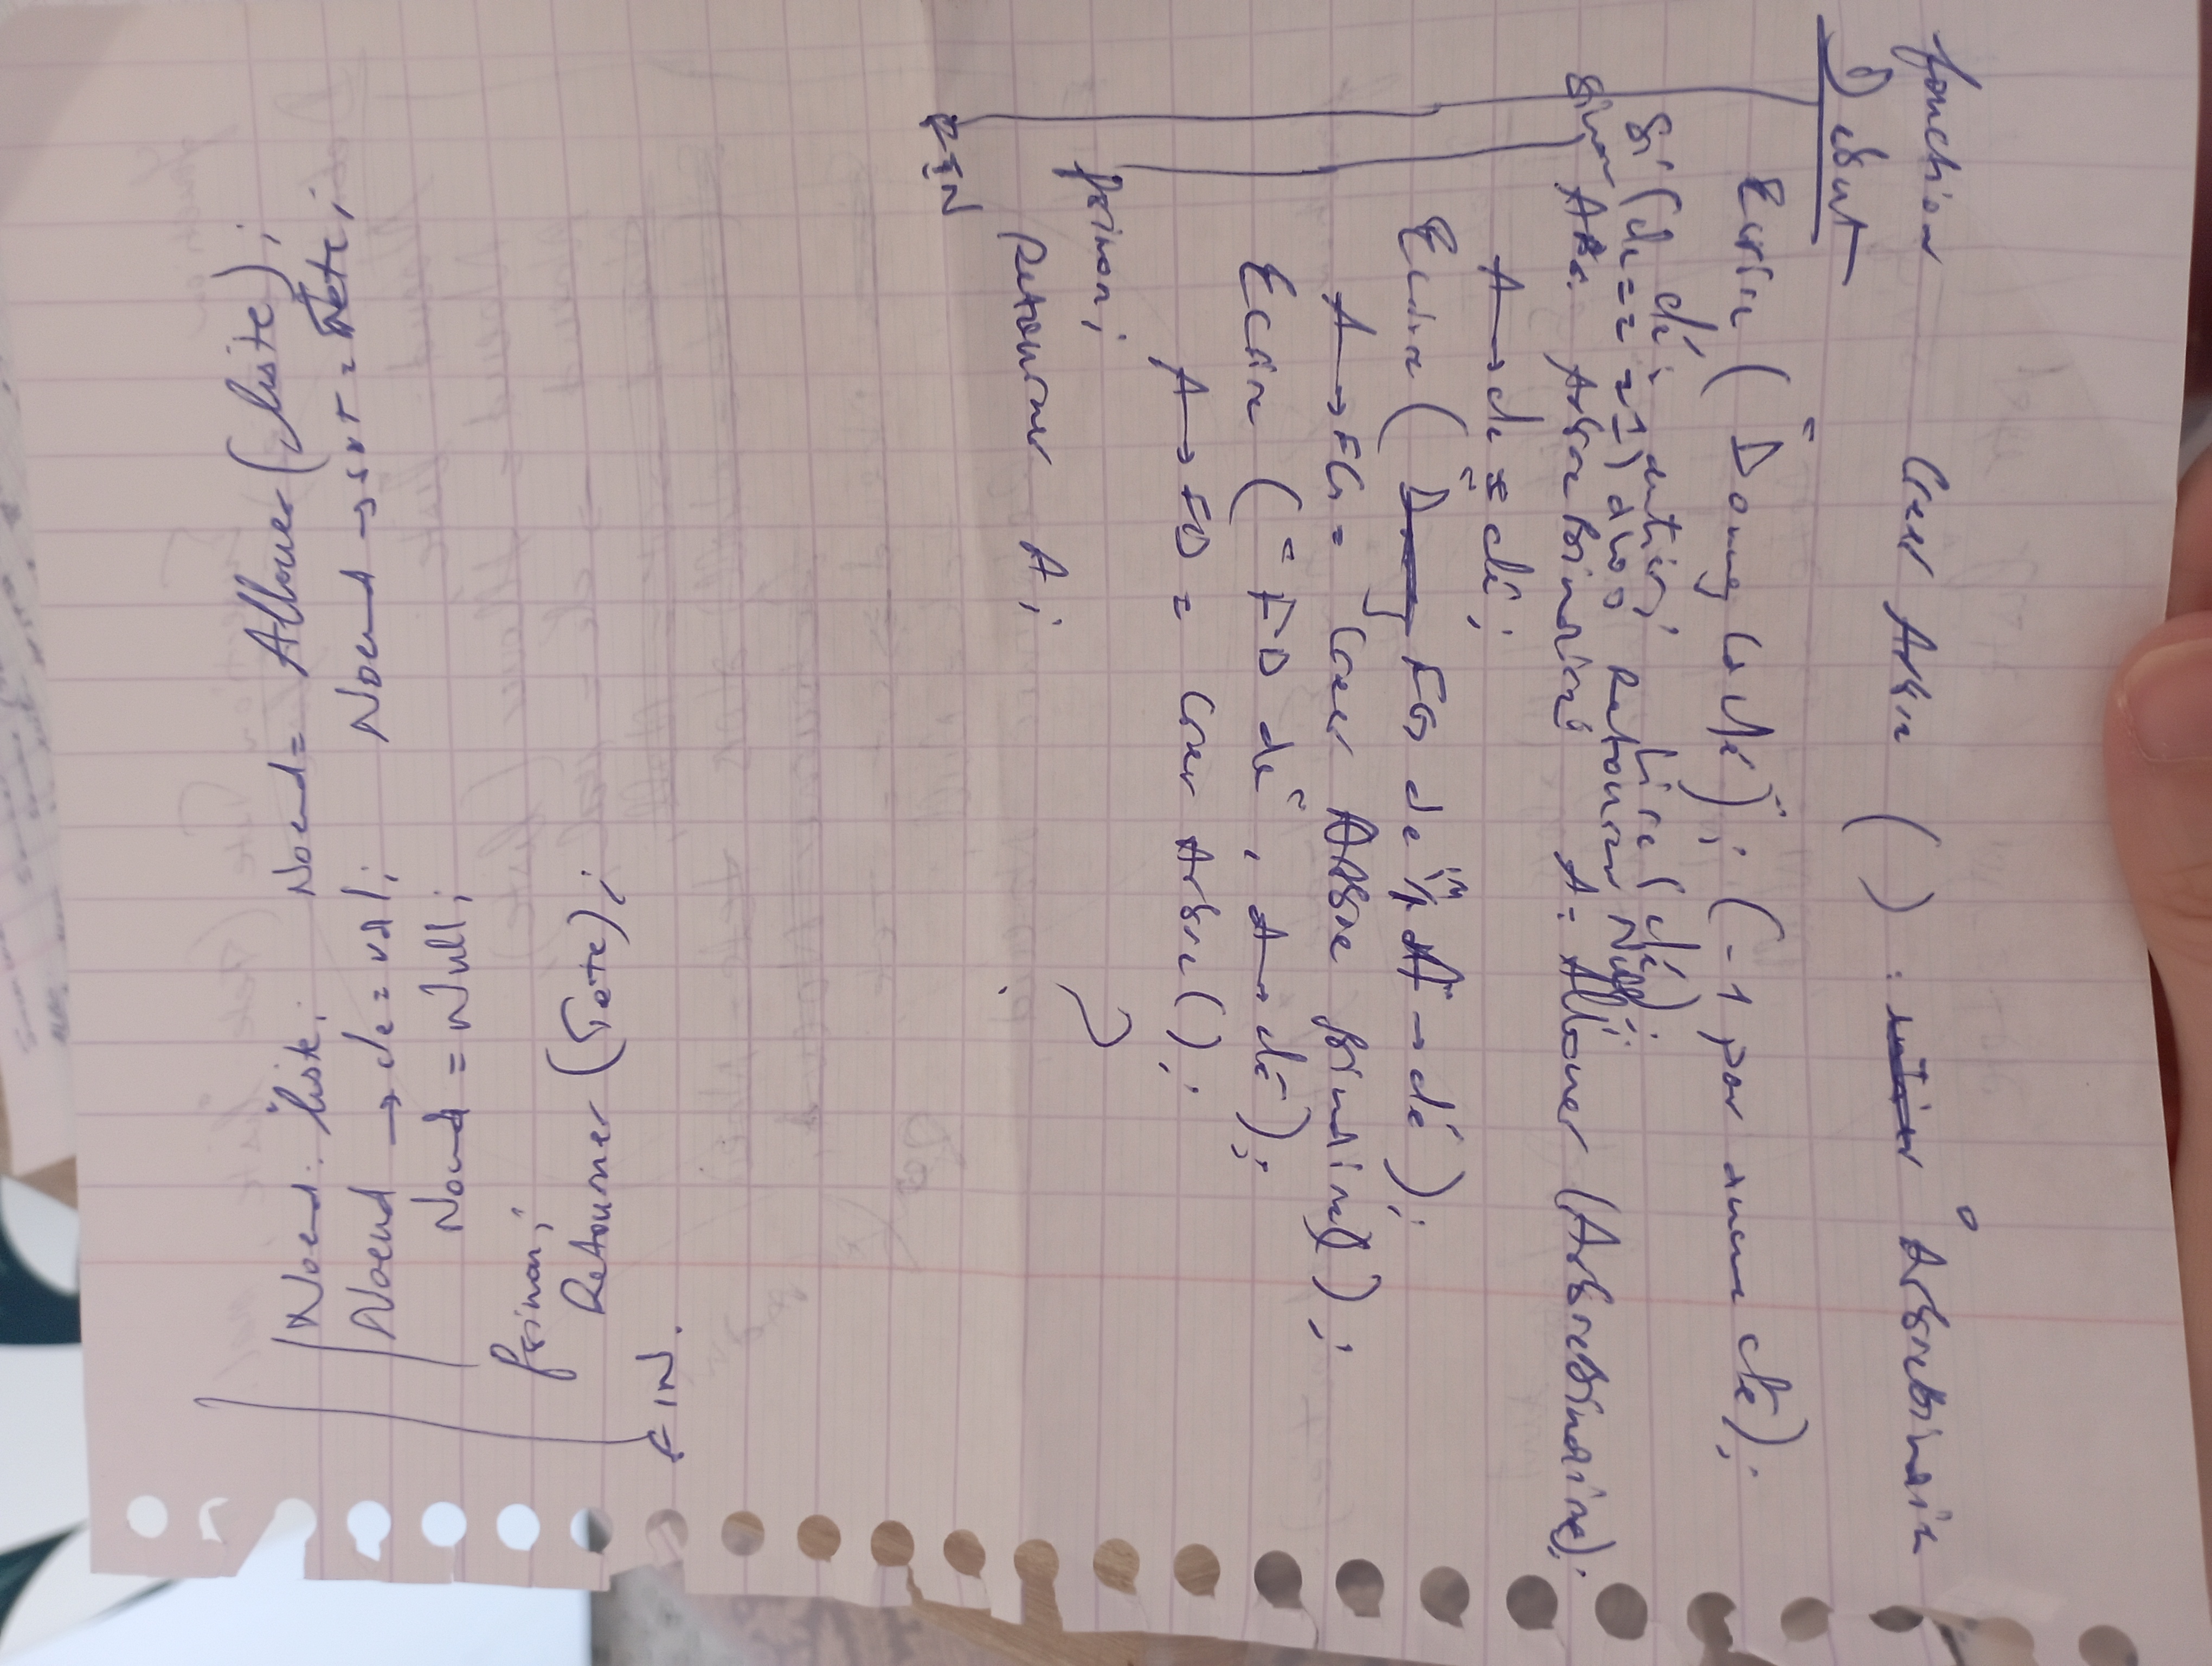 Noeud: liste; Noeud= Allouer (liste);
Noeud → cle = val; Noeud → svt = Tete;
Noeud = Null;
fsinon;
Retourner (Tete);
FIN.
fonction Creer Arbre ( ) : ArbreBinaire
Debut
Ecrire ( "Donnez la clé"); (-1 pour aucune clé);
clé: entier; Lire (clé);
Si (cle == -1) alors Retourner Null;
Sinon A: Arbre Binaire; A = Allouer (ArbreBinaire);
A → cle = clé;
Ecrire ( FG de", A → clé );
A → FG = Creer Arbre Binaire( );
Ecrire ( "FD de", A → clé );
A → FD = Creer Arbre ( );
fsinon;
Retourne A;
FIN